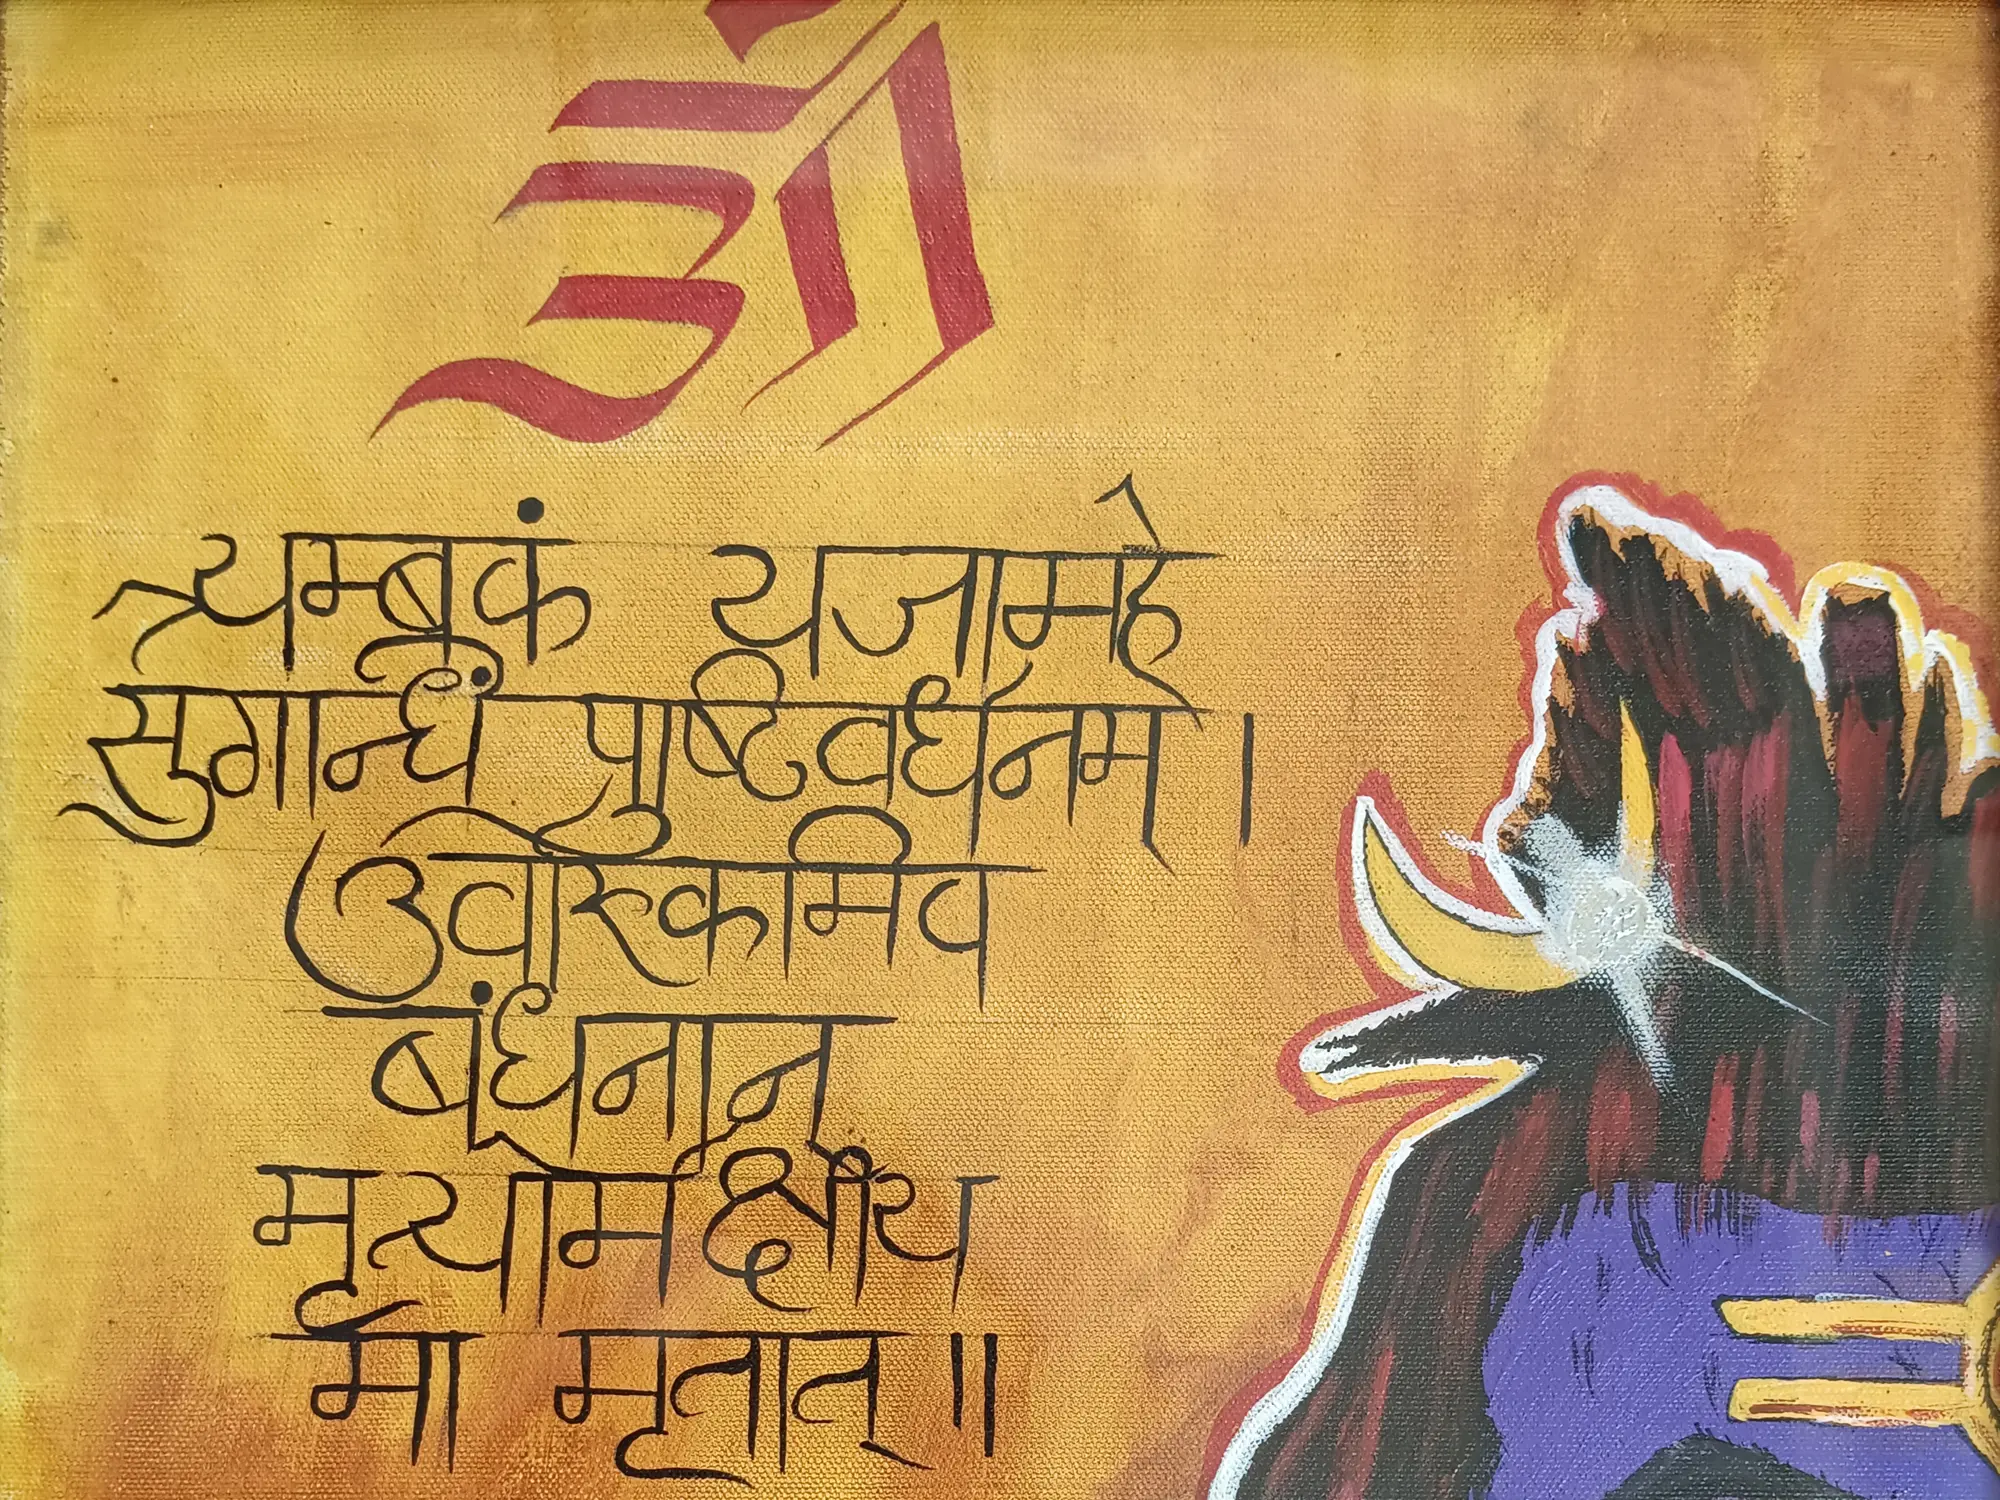 ओ
त्र्यम्बकं यजामहे
सुगन्धिं पुष्टिवर्धनम् ।
उर्वारुकमिव
बंधनान्
मृत्योर्मक्षीय
मा मृतात् ॥